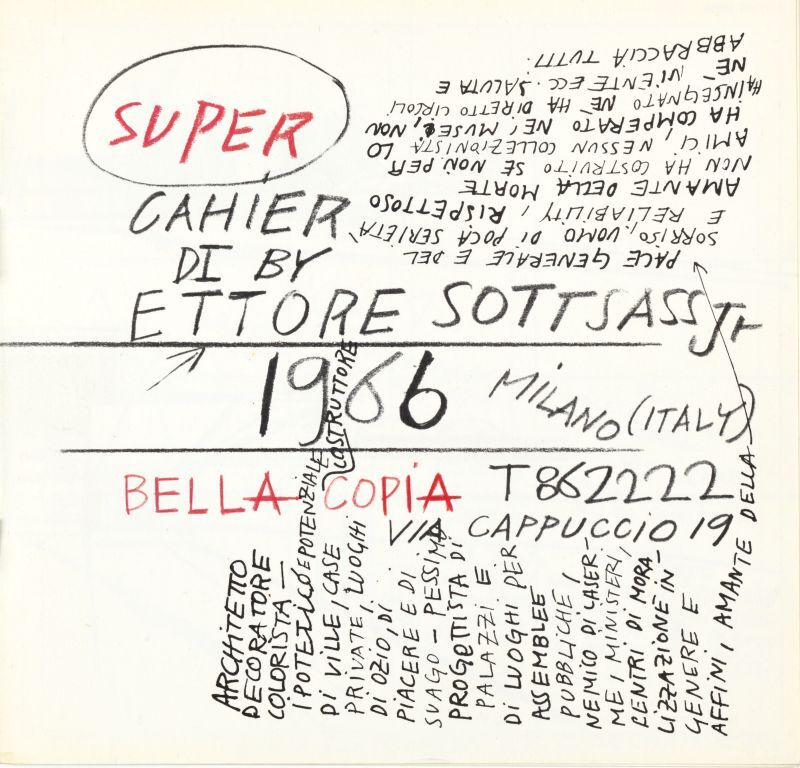 SUPER
CAHIER
DI BY
ETTORE SOTTSASS Jr
1966
MILANO (ITALY)
BELLA COPIA
T 862222
VIA CAPPUCCIO 19
ARCHITETTO
DECORATORE
COLORISTA —
IPOTETICO E POTENZIALE COSTRUTTORE
DI VILLE, CASE
PRIVATE, LUOGHI
DI OZIO, DI
PIACERE E DI
SVAGO — PESSIMO
PROGETTISTA DI
PALAZZI E
DI LUOGHI PER
ASSEMBLEE
PUBBLICHE,
NEMICO DI CASER-
ME, MINISTERI,
CENTRI DI MORA-
LIZZAZIONE IN
GENERE E
AFFINI, AMANTE DELLA
PACE GENERALE E DEL
SORRISO, UOMO DI POCA SERIETÀ
E RELIABILITY, RISPETTOSO
AMANTE DELLA MORTE
NON HA COSTRUITO SE NON PER
AMICI, NESSUN COLLEZIONISTA LO
HA COMPERATO NÉ, MUSEI, NON
HA INSEGNATO NÉ HA DIRETTO CIRCOLI
NÉ NIENTE ECC. SALUTA E
ABBRACCIA TUTTI.